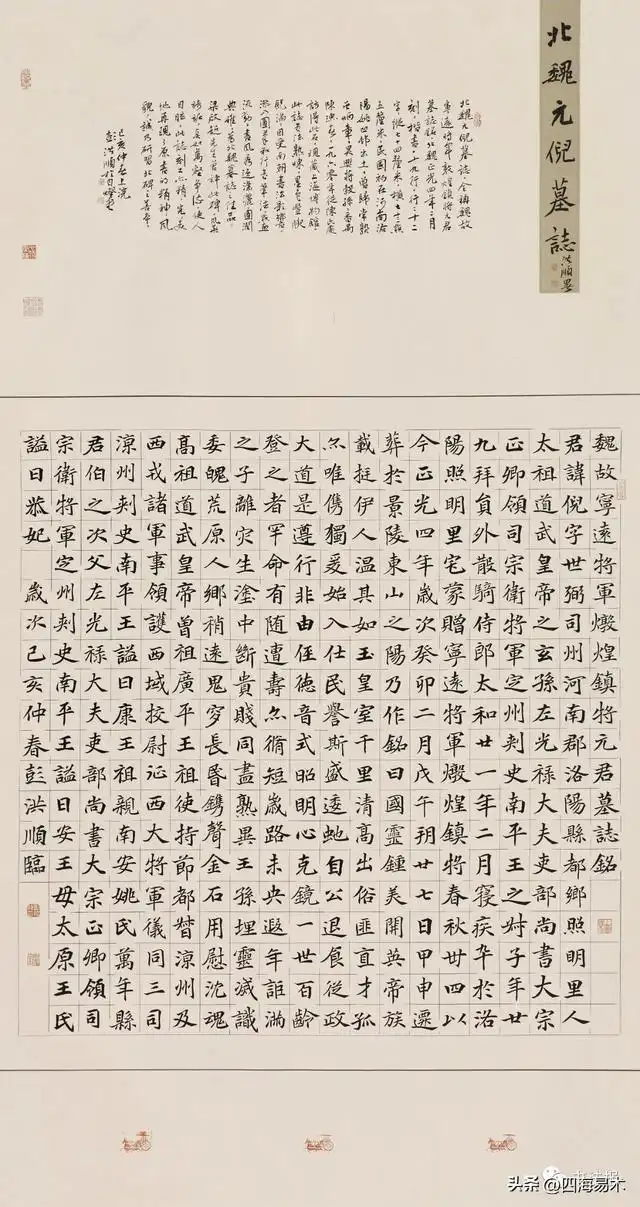 北魏元倪墓誌
洪順署
北魏元倪墓誌，全稱魏故
寧遠將軍敦煌鎮將元君
墓誌銘，北魏正光四年二月
刻，楷書，十九行，行二十二
字，縱七十四釐米，橫七十三點
五釐米，民國初在河南洛
陽姚凹郭出土，曾歸常熟
訪得，此石現藏上海博物館
此誌書法
肥滿
流動
典雅，為北魏墓誌之佳品。
梁啟超
日臨，此誌刻工亦精
他再現了原書的精神風
貌，誠乃研習北碑之善本。
己亥仲春上浣
彭洪順
魏故寧遠將軍燉煌鎮將元君墓誌銘
君諱倪字世弼司州河南郡洛陽縣都鄉照明里人
太祖道武皇帝之玄孫左光祿大夫吏部尚書大宗
正卿領司宗衛將軍定州刾史南平王之子年廿
九拜員外散騎侍郎太和廿一年二月寑疾卒於洛
陽照明里宅蒙贈寧遠將軍燉煌鎮將春秋丗四以
今正光四年歲次癸卯二月戊午朔廿七日甲申遷
葬於景陵東山之陽乃作銘曰國靈鍾美開英帝族
載挺伊人温其如玉皇室千里清高出俗匪直才孤
尒唯儁獨爰始入仕民譽斯盛逶虵自公退食從政
大道是遵行非由侄德音式昭明心克鏡一世百齡
登之者罕命有随遭壽尒脩短歲路未央遐年詎滿
之子離灾生塗中斷貴賤同盡熟異王孫埋靈滅識
委魄荒原人鄉稍遠鬼穸長昏鐫聲金石用慰沈魂
高祖道武皇帝曾祖廣平王祖使持節都督涼州及
西戎諸軍事領護西域挍尉征西大將軍儀同三司
涼州刾史南平王謚曰康王祖親南安姚氏萬年縣
君伯之次父左光祿大夫吏部尚書大宗正卿領司
宗衛將軍定州刾史南平王謚曰安王母太原王氏
謚曰恭妃　歲次己亥仲春彭洪順臨
头条 @四海易木